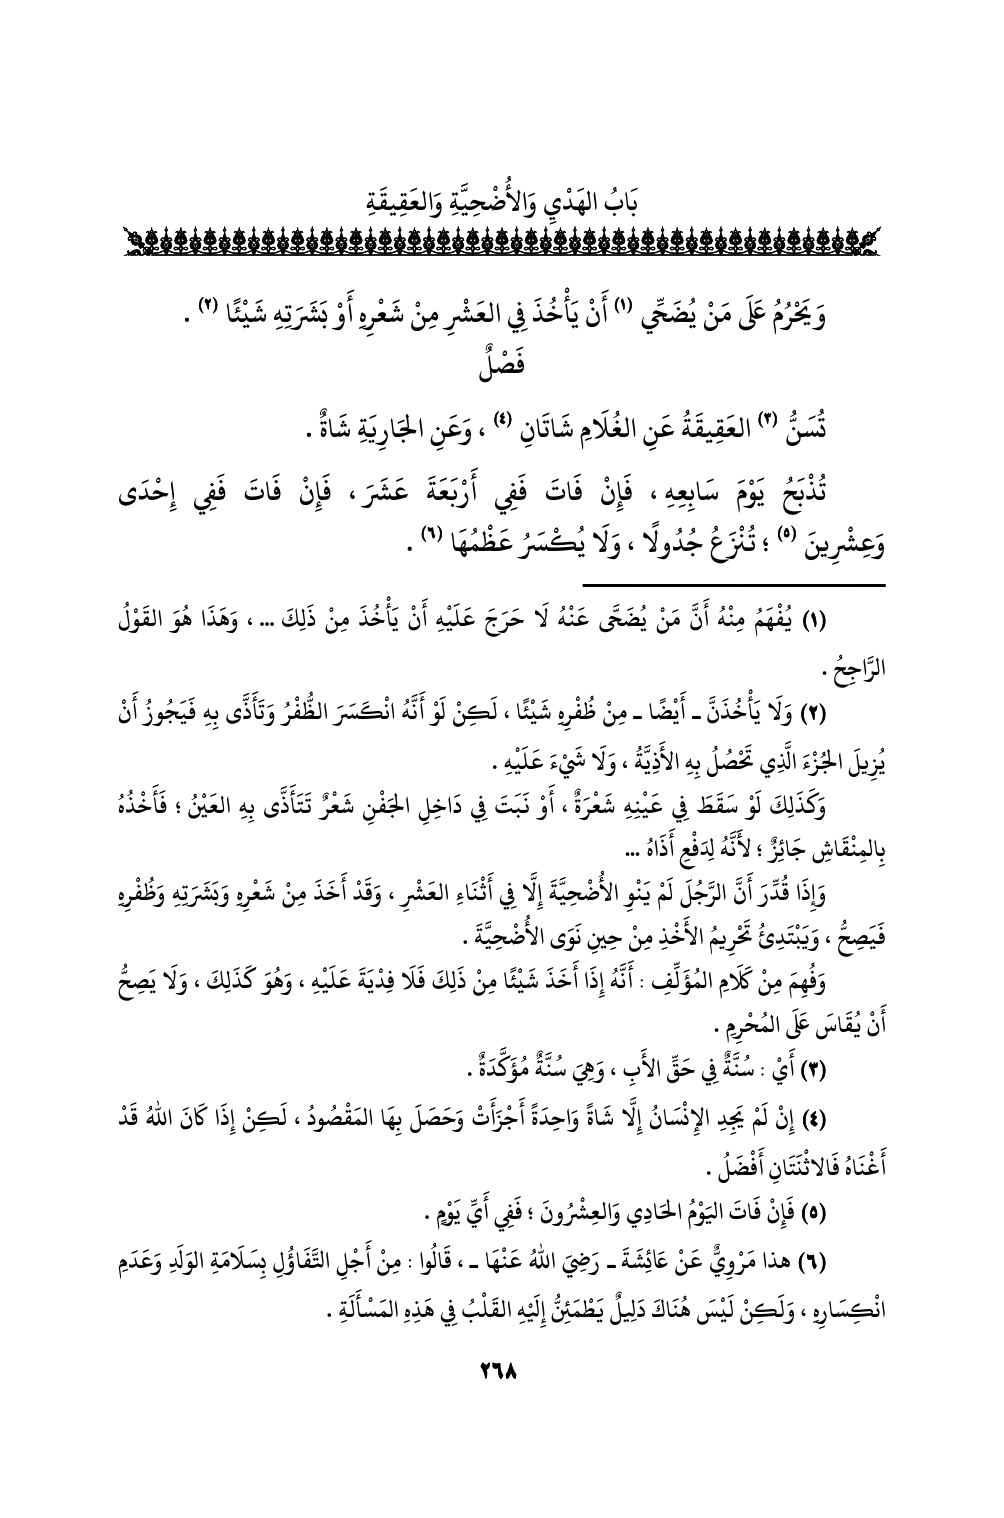 بَابُ الهَدْيِ وَالأُضْحِيَّةِ وَالعَقِيقَةِ
وَيَحْرُمُ عَلَى مَنْ يُضَحِّي (١) أَنْ يَأْخُذَ فِي العَشْرِ مِنْ شَعْرِهِ أَوْ بَشَرَتِهِ شَيْئًا (٢) .
فَصْلٌ
تُسَنُّ (٣) العَقِيقَةُ عَنِ الغُلَامِ شَاتَانِ (٤) ، وَعَنِ الجَارِيَةِ شَاةٌ .
تُذْبَحُ يَوْمَ سَابِعِهِ ، فَإِنْ فَاتَ فَفِي أَرْبَعَةَ عَشَرَ ، فَإِنْ فَاتَ فَفِي إِحْدَى
وَعِشْرِينَ (٥) ؛ تُنْزَعُ جُدُولًا ، وَلَا يُكْسَرُ عَظْمُهَا (٦) .
(١) يُفْهَمُ مِنْهُ أَنَّ مَنْ يُضَحَّى عَنْهُ لَا حَرَجَ عَلَيْهِ أَنْ يَأْخُذَ مِنْ ذَلِكَ ... ، وَهَذَا هُوَ القَوْلُ
الرَّاجِحُ .
(٢) وَلَا يَأْخُذَنَّ ـ أَيْضًا ـ مِنْ ظُفْرِهِ شَيْئًا ، لَكِنْ لَوْ أَنَّهُ انْكَسَرَ الظُّفْرُ وَتَأَذَّى بِهِ فَيَجُوزُ أَنْ
يُزِيلَ الجُزْءَ الَّذِي تَحْصُلُ بِهِ الأَذِيَّةُ ، وَلَا شَيْءَ عَلَيْهِ .
وَكَذَلِكَ لَوْ سَقَطَ فِي عَيْنِهِ شَعْرَةٌ ، أَوْ نَبَتَ فِي دَاخِلِ الجَفْنِ شَعْرٌ تَتَأَذَّى بِهِ العَيْنُ ؛ فَأَخْذُهُ
بِالمِنْقَاشِ جَائِزٌ ؛ لأَنَّهُ لِدَفْعِ أَذَاهُ ...
وَإِذَا قُدِّرَ أَنَّ الرَّجُلَ لَمْ يَنْوِ الأُضْحِيَّةَ إِلَّا فِي أَثْنَاءِ العَشْرِ ، وَقَدْ أَخَذَ مِنْ شَعْرِهِ وَبَشَرَتِهِ وَظُفْرِهِ
فَيَصِحُّ ، وَيَبْتَدِئُ تَحْرِيمُ الأَخْذِ مِنْ حِينِ نَوَى الأُضْحِيَّةَ .
وَفُهِمَ مِنْ كَلَامِ المُؤَلِّفِ : أَنَّهُ إِذَا أَخَذَ شَيْئًا مِنْ ذَلِكَ فَلَا فِدْيَةَ عَلَيْهِ ، وَهُوَ كَذَلِكَ ، وَلَا يَصِحُّ
أَنْ يُقَاسَ عَلَى المُحْرِمِ .
(٣) أَيْ : سُنَّةٌ فِي حَقِّ الأَبِ ، وَهِيَ سُنَّةٌ مُؤَكَّدَةٌ .
(٤) إِنْ لَمْ يَجِدِ الإِنْسَانُ إِلَّا شَاةً وَاحِدَةً أَجْزَأَتْ وَحَصَلَ بِهَا المَقْصُودُ ، لَكِنْ إِذَا كَانَ اللهُ قَدْ
أَغْنَاهُ فَالاثْنَتَانِ أَفْضَلُ .
(٥) فَإِنْ فَاتَ اليَوْمُ الحَادِي وَالعِشْرُونَ ؛ فَفِي أَيِّ يَوْمٍ .
(٦) هذا مَرْوِيٌّ عَنْ عَائِشَةَ ـ رَضِيَ اللهُ عَنْهَا ـ ، قَالُوا : مِنْ أَجْلِ التَّفَاؤُلِ بِسَلَامَةِ الوَلَدِ وَعَدَمِ
انْكِسَارِهِ ، وَلَكِنْ لَيْسَ هُنَاكَ دَلِيلٌ يَطْمَئِنُّ إِلَيْهِ القَلْبُ فِي هَذِهِ المَسْأَلَةِ .
٢٦٨